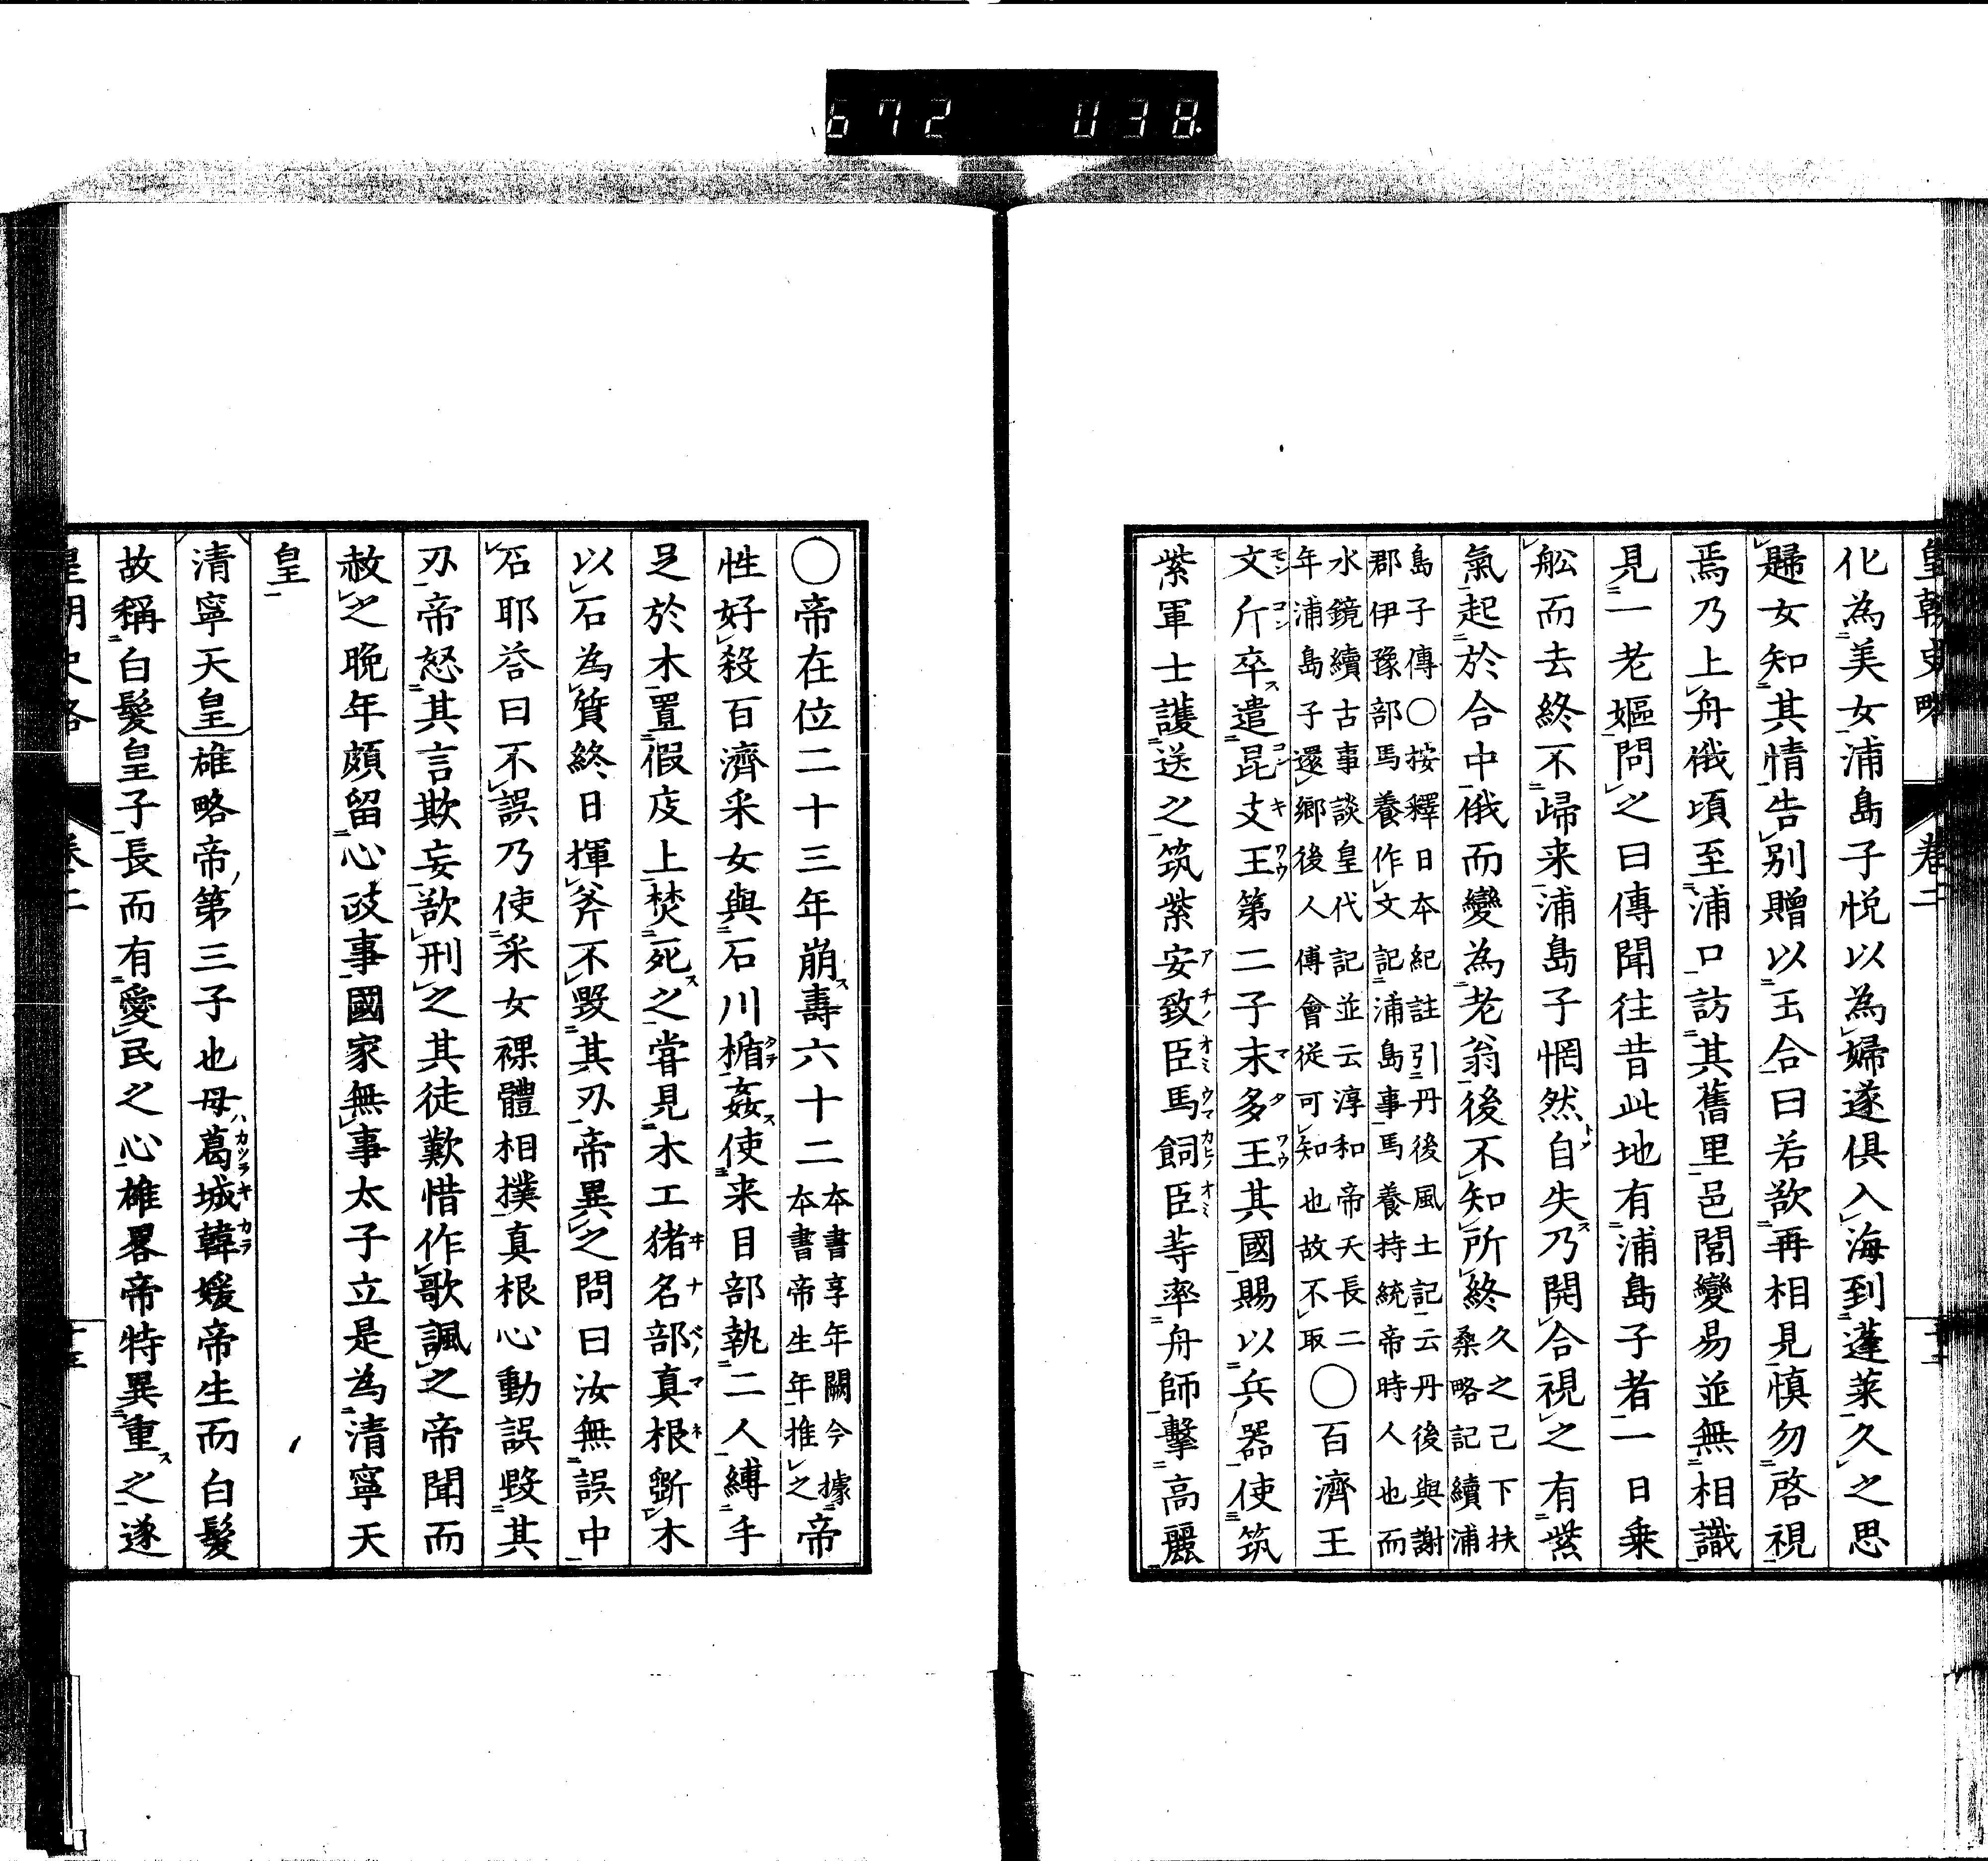 672 038
皇朝史略 卷二 十二
化為美女浦島子悦以為婦遂俱入海到蓬萊久之思
歸女知其情告別贈以玉合曰若欲再相見慎勿啓視
焉乃上舟俄頃至浦口訪其舊里邑閭變易並無相識
見一老嫗問之曰傳聞往昔此地有浦島子者一日乗
舩而去終不歸来浦島子惘然自失乃開合視之有紫
氣起於合中俄而變為老翁後不知所終
久之己下扶
桑略記續浦
島子傳○按釋日本紀註引丹後風土記云丹後與謝
郡伊豫部馬養作文記浦島事馬養持統帝時人也而
水鏡續古事談皇代記並云淳和帝天長二
年浦島子還鄉後人傅會從可知也故不取
○百濟王
文斤卒遣昆支王第二子末多王其國賜以兵器使筑
紫軍士護送之筑紫安致臣馬飼臣等率舟師擊高麗
○帝在位二十三年崩壽六十二
本書享年闕今據
本書帝生年推之
帝
性好殺百濟采女與石川楯姦使来目部執二人縛手
足於木置假庪上焚死之嘗見木工猪名部真根斲木
以石為質終日揮斧不毀其刃帝異之問曰汝無誤中
石耶荅曰不誤乃使采女裸體相撲真根心動誤毀其
刃帝怒其言欺妄欲刑之其徒歎惜作歌諷之帝聞而
赦之晩年頗留心政事國家無事太子立是為清寧天
皇
清寧天皇雄略帝第三子也母葛城韓媛帝生而白髮
故稱白髮皇子長而有愛民之心雄畧帝特異重之遂
皇朝史略 卷二 十三